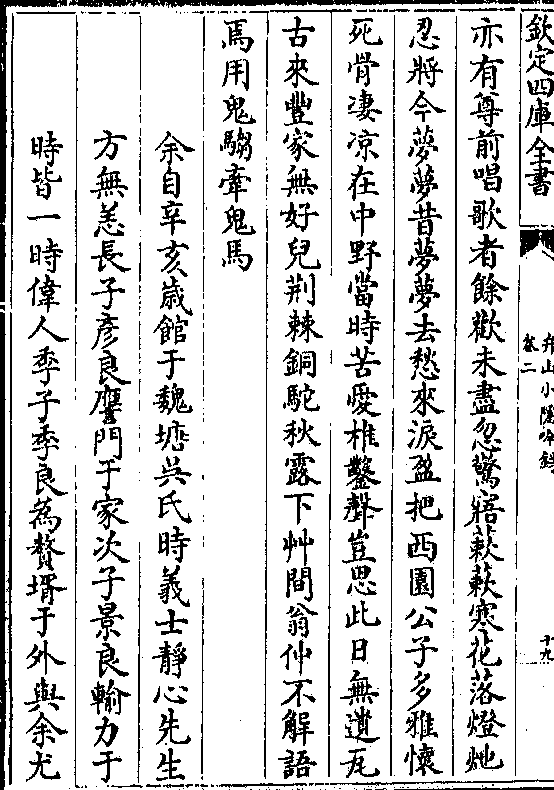 欽定四庫全書
弁山小隱吟録
卷二
十九
亦有尊前唱歌者餘歡未盡忽驚寤蔌蔌寒花落燈灺
忍將今夢夢昔夢夢去愁來淚盈把西園公子多雅懷
死骨凄凉在中野當時苦愛椎鑿聲豈思此日無遺瓦
古來豐家無好兒荆棘銅駝秋露下艸間翁仲不解語
焉用鬼騶牽鬼馬
余自辛亥歳館于魏塘吳氏時義士靜心先生
方無恙長子彦良應門于家次子景良輸力于
時皆一時偉人季子季良為贅壻于外與余尤